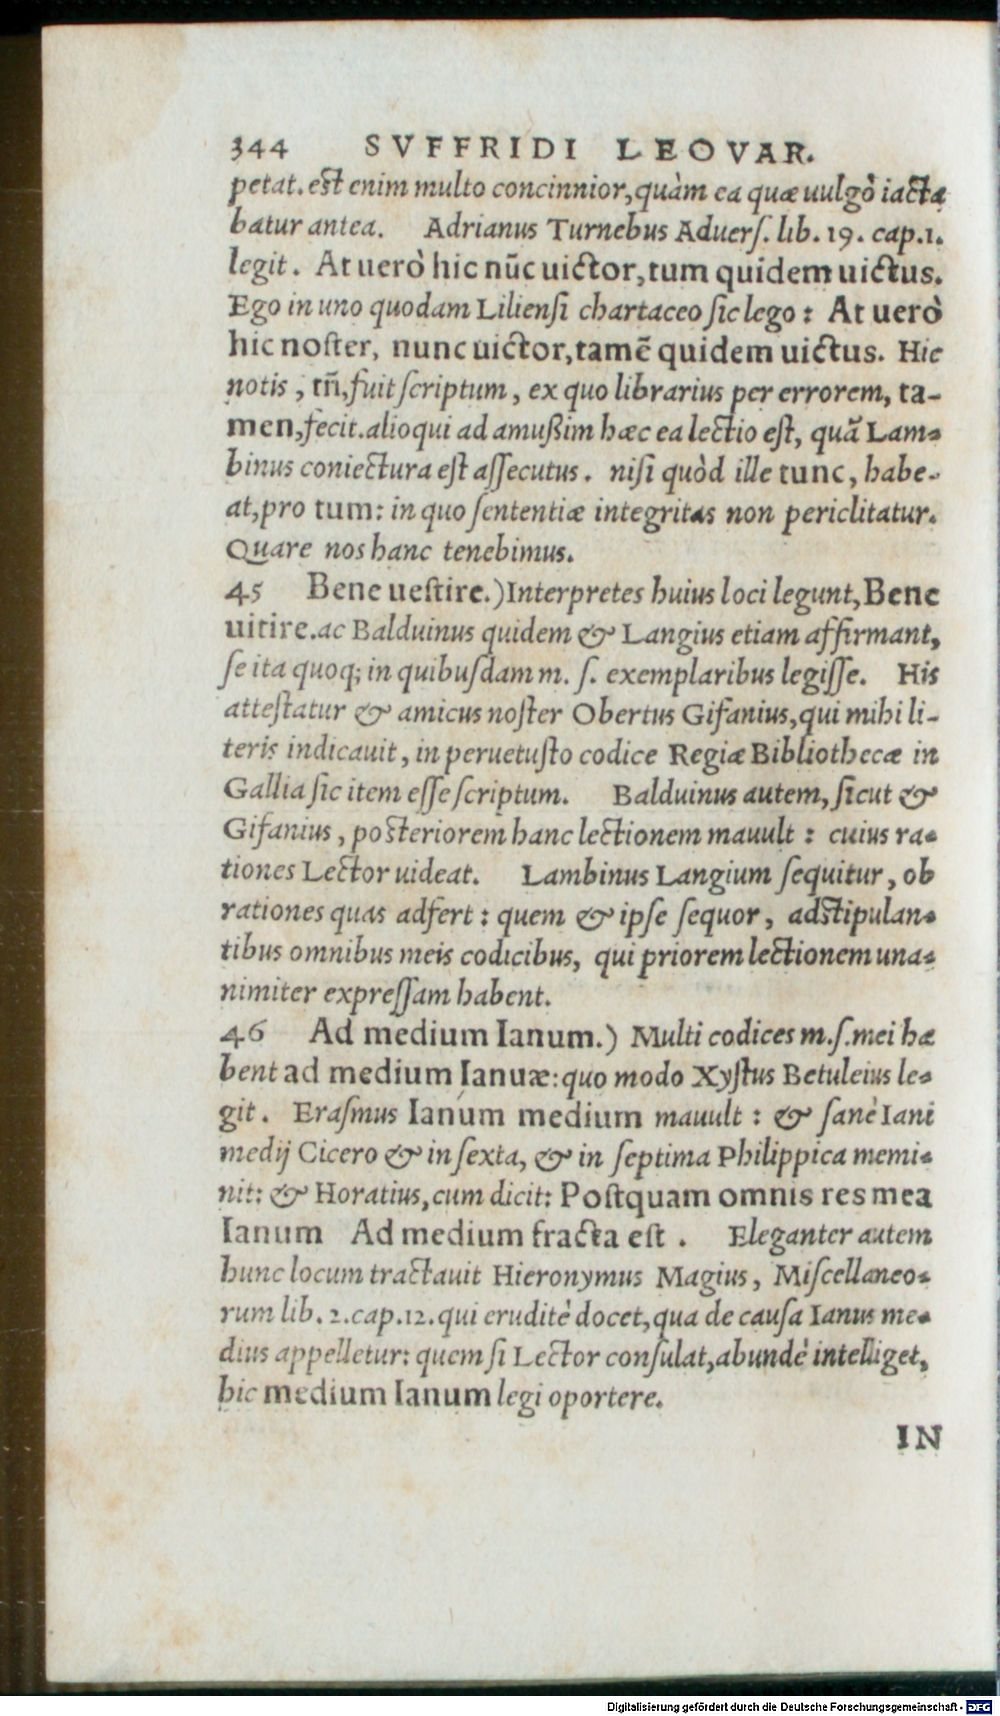 344 SVFFRIDI LEOVAR.
petat. est enim multo concinnior, quàm ea quæ uulgò iacta
batur antea. Adrianus Turnebus Aduers. lib. 19. cap. 1.
legit. At uerò hic nūc uictor, tum quidem uictus.
Ego in uno quodam Liliensi chartaceo sic lego: At uerò
hic noster, nunc uictor, tamē quidem uictus. Hic
notis, tñ, fuit scriptum, ex quo librarius per errorem, ta-
men, fecit. alioqui ad amußim hæc ea lectio est, quā Lam-
binus coniectura est assecutus. nisi quòd ille tunc, habe-
at, pro tum: in quo sententiæ integritas non periclitatur.
Quare nos hanc tenebimus.
45 Bene uestire.) Interpretes huius loci legunt, Bene
uitire. ac Balduinus quidem & Langius etiam affirmant,
se ita quoq; in quibusdam m. s. exemplaribus legisse. His
attestatur & amicus noster Obertus Gifanius, qui mihi li-
teris indicauit, in peruetusto codice Regiæ Bibliothecæ in
Gallia sic item esse scriptum. Balduinus autem, sicut &
Gifanius, posteriorem hanc lectionem mauult: cuius ra-
tiones Lector uideat. Lambinus Langium sequitur, ob
rationes quas adfert: quem & ipse sequor, adstipulan-
tibus omnibus meis codicibus, qui priorem lectionem una-
nimiter expressam habent.
46 Ad medium Ianum.) Multi codices m. s. mei hæ
bent ad medium Ianuæ: quo modo Xystus Betuleius le-
git. Erasmus Ianum medium mauult: & sanè Iani
medij Cicero & in sexta, & in septima Philippica memi-
nit: & Horatius, cum dicit: Postquam omnis res mea
Ianum Ad medium fracta est. Eleganter autem
hunc locum tractauit Hieronymus Magius, Miscellaneo-
rum lib. 2. cap. 12. qui eruditè docet, qua de causa Ianus me-
dius appelletur: quem si Lector consulat, abundè intelliget,
hic medium Ianum legi oportere.
IN
Digitalisierung gefördert durch die Deutsche Forschungsgemeinschaft - DFG